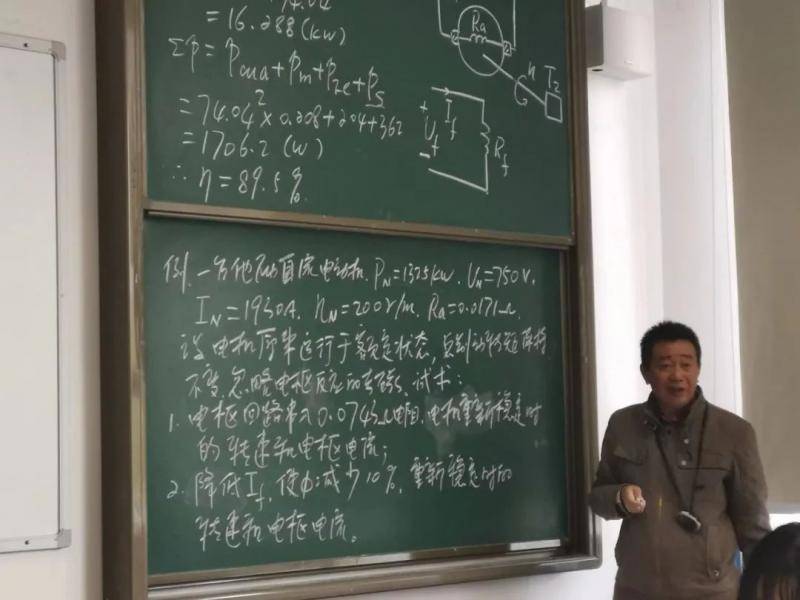 = 16.288(kw)
Σp = pcua+pm+pze+ps
= 74.04²×0.208+204+362
= 1706.2 (W)
∴ η = 89.5%
Ra
n T2
+ If
Uf Rf
-
例. 一台他励直流电动机, PN=1325kw, UN=750V,
IN=1930A, nN=200r/m, Ra=0.0171Ω,
设电机原来运行于额定状态, 且制动转矩保持
不变, 忽略电枢反应的影响, 试求:
1. 电枢回路串入0.0743Ω电阻, 电机重新稳定时
的转速和电枢电流;
2. 降低If, 使Φ减少10%, 重新稳定时的
转速和电枢电流。